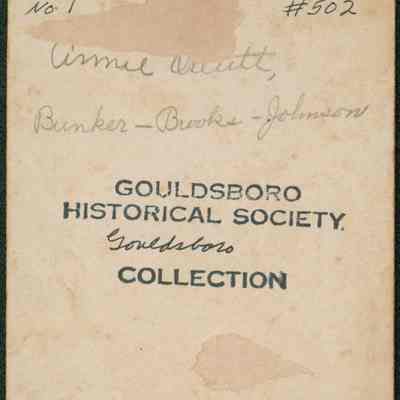 No 1 #502
Bunker - Brooks - Johnson
GOULDSBORO
HISTORICAL SOCIETY.
Gouldsboro
COLLECTION